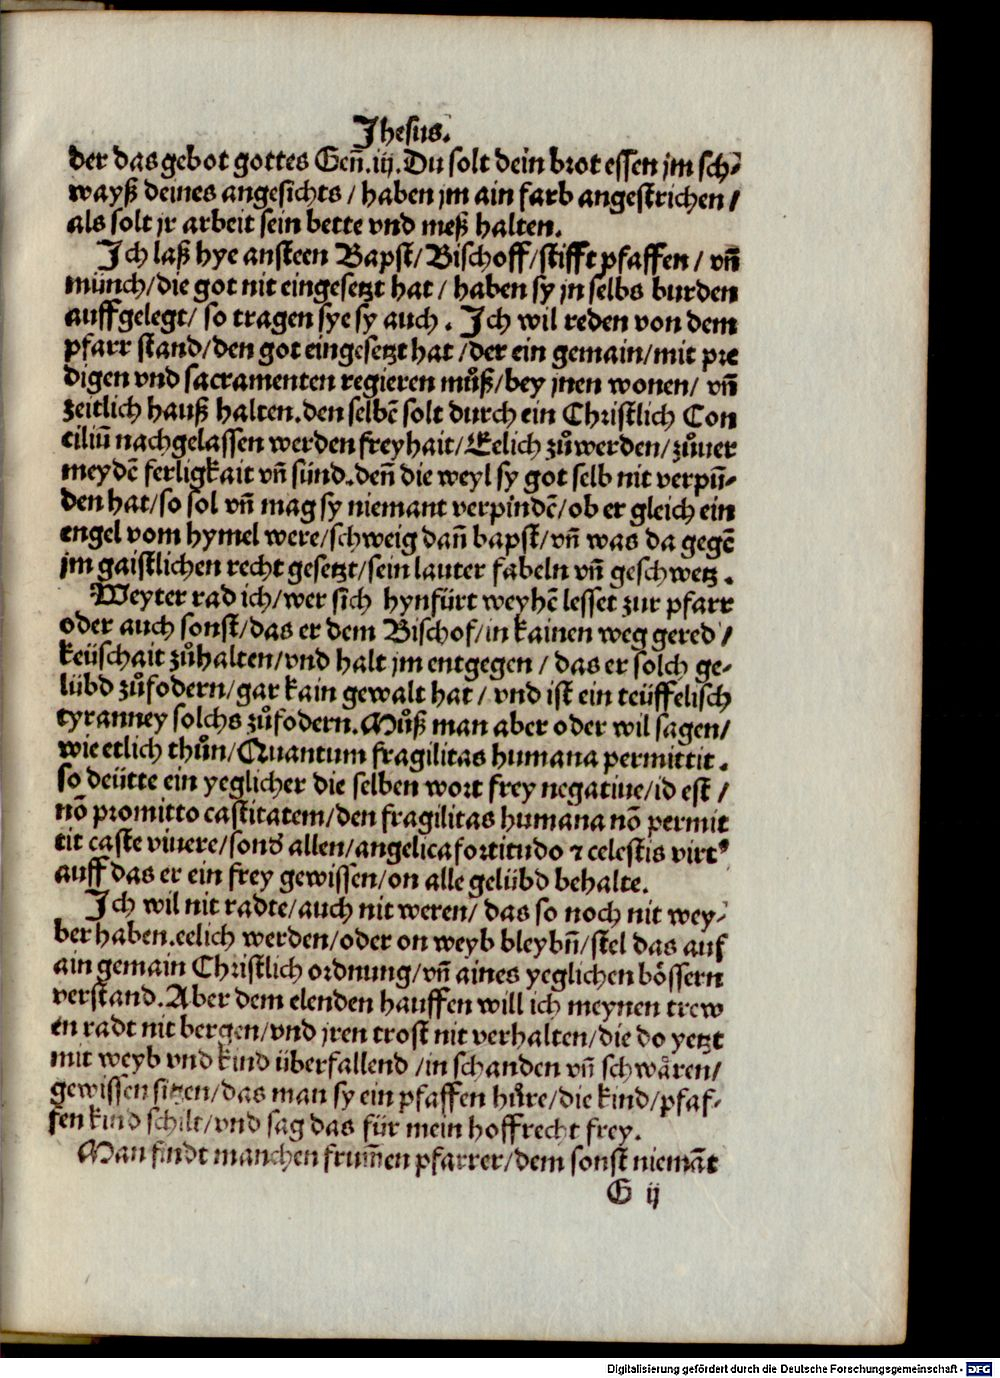 Jhesus.
der das gebot gottes Geñ.iij.Du solt dein brot essen jm sch⸗
wayß deines angesichts / haben jm ain farb angestrichen /
als solt jr arbeit sein bette vnd meß halten.
Ich laß hye ansteen Bapst/Bischoff/stifft pfaffen / vñ
münch/die got nit eingesetzt hat / haben sy jn selbs burden
auffgelegt/ so tragen sye sy auch . Ich wil reden von dem
pfarr stand/den got eingesetzt hat /der ein gemain/mit pre
digen vnd sacramenten regieren můß/bey jnen wonen/ vñ
zeitlich hauß halten.den selbẽ solt durch ein Christlich Con
ciliũ nachgelassen werden freyhait/Eelich zůwerden/zůuer
meydẽ ferligkait vñ sünd.deñ die weyl sy got selb nit verpũ⸗
den hat/so sol vñ mag sy niemant verpindẽ/ob er gleich ein
engel vom hymel were/schweig dañ bapst/vñ was da gegẽ
jm gaistlichen recht gesetzt/sein lauter fabeln vñ geschwetz .
Weyter rad ich/wer sich hynfürt weyhẽ lesset zur pfarr
oder auch sonst/das er dem Bischof/in kainen weg gered /
keüschait zůhalten/vnd halt jm entgegen / das er solch ge⸗
lübd zůfodern/gar kain gewalt hat / vnd ist ein teüffelisch
tyranney solchs zůfodern.Můß man aber oder wil sagen/
wie etlich thůn/Quantum fragilitas humana permittit .
so deütte ein yeglicher die selben wort frey negatiue/id est /
nõ promitto castitatem/den fragilitas humana nõ permit
tit caste viuere/sonď allen/angelica fortitudo ⁊ celestis virtꝰ
auff das er ein frey gewissen/on alle gelübd behalte.
Ich wil nit radte/auch nit weren/ das so noch nit wey⸗
ber haben.eelich werden/oder on weyb bleybñ/stel das auf
ain gemain Christlich ordnung/vñ aines yeglichen bössern
verstand.Aber dem elenden hauffen will ich meynen trew
en radt nit bergen/vnd jren trost nit verhalten/die do yetzt
mit weyb vnd kind überfallend /in schanden vñ schwåren/
gewissen sitzen/das man sy ein pfaffen hůre/die kind/pfaf⸗
fen kind schilt/vnd sag das für mein hoffrecht frey.
Man findt manchen frum̃en pfarrer/dem sonst niemãt
G ij
Digitalisierung gefördert durch die Deutsche Forschungsgemeinschaft - DFG